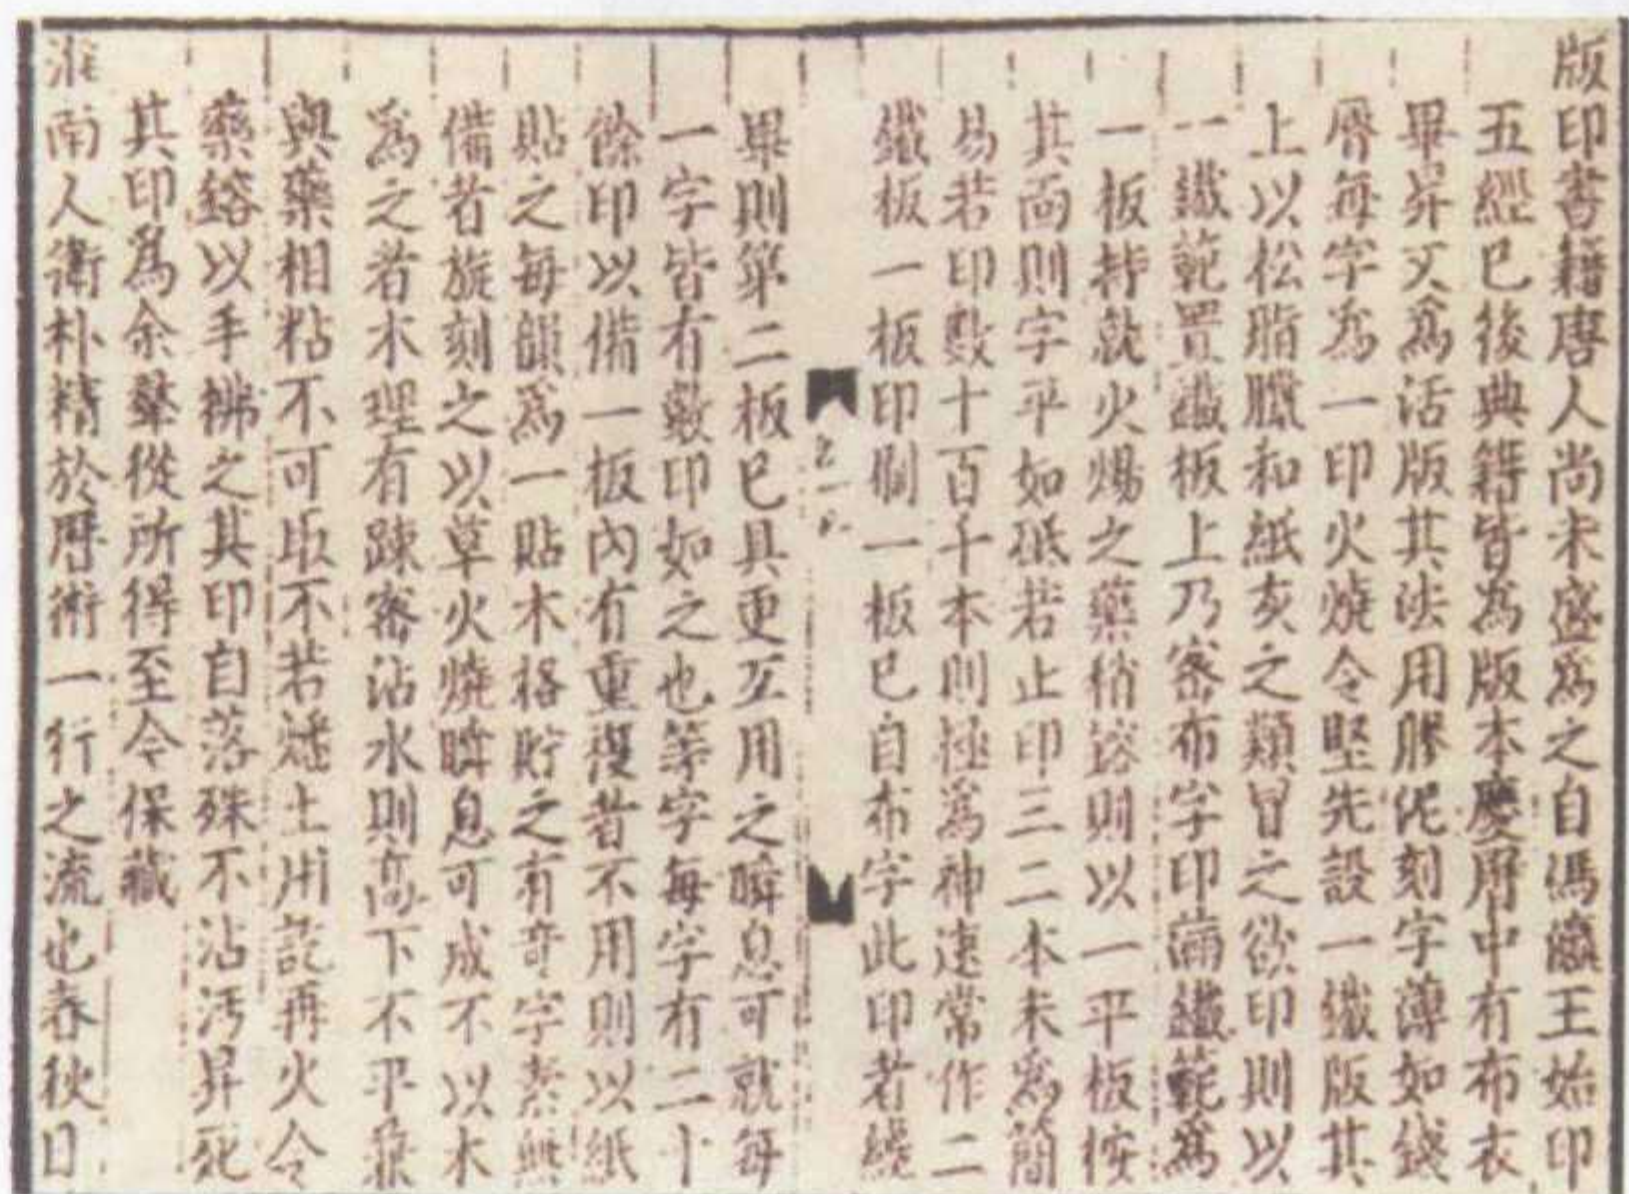 版印書籍唐人尚未盛為之自馮瀛王始印
五經已後典籍皆為版本慶曆中有布衣
畢昇又為活版其法用膠泥刻字薄如錢
脣每字為一印火燒令堅先設一鐵版其
上以松脂臘和紙灰之類冒之欲印則以
一鐵範置鐵板上乃密布字印滿鐵範為
一板持就火煬之藥稍鎔則以一平板按
其面則字平如砥若止印三二本未為簡
易若印數十百千本則極為神速常作二
鐵板一板印刷一板已自布字此印者纔
畢則第二板已具更互用之瞬息可就每
一字皆有數印如之也等字每字有二十
餘印以備一板內有重複者不用則以紙
貼之每韻為一貼木格貯之有奇字素無
備者旋刻之以草火燒瞬息可成不以木
為之者木理有疎密沾水則高下不平兼
與藥相粘不可取不若燔土用訖再火令
藥鎔以手拂之其印自落殊不沾汚昇死
其印為余羣從所得至今保藏
淮南人衛朴精於曆術一行之流也春秋日